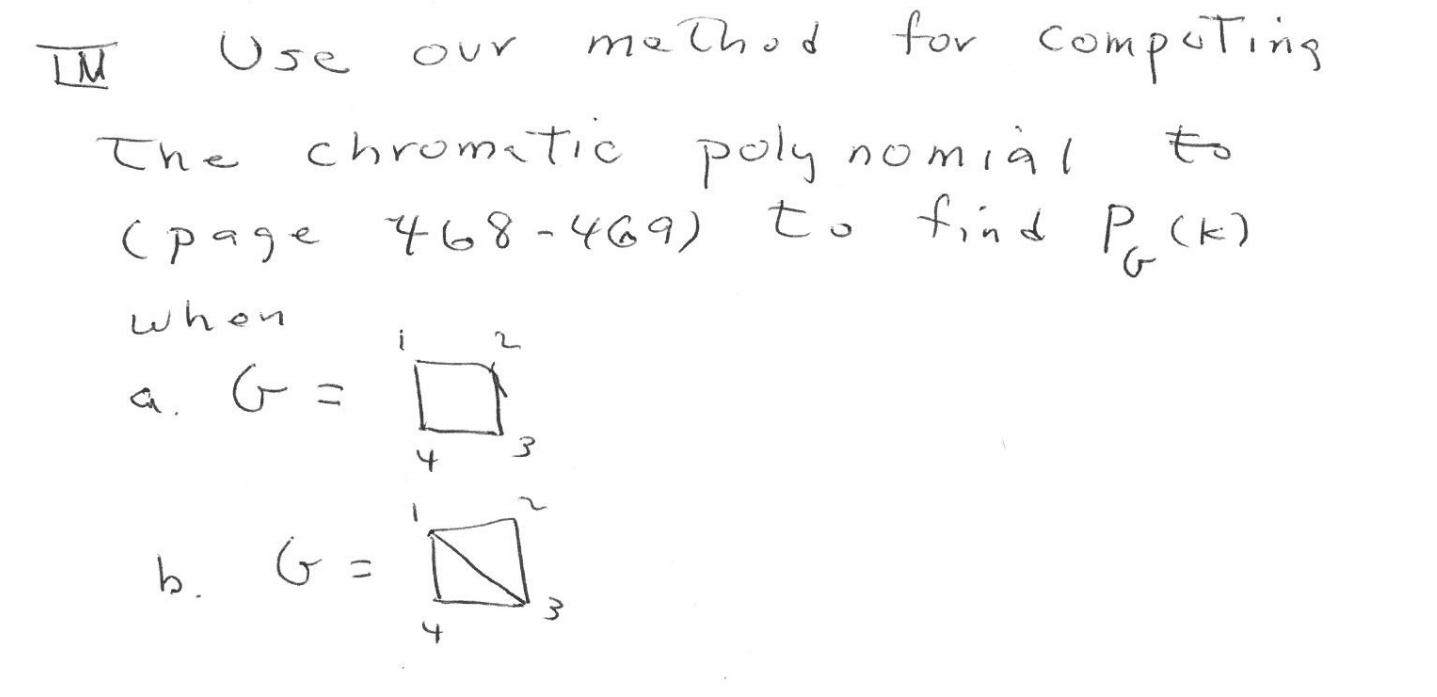 IV Use our method for computing
the chromatic polynomial to
(page 468-469) to find P_G(k)
when
a. G =
1 2
4 3
b. G =
1 2
4 3